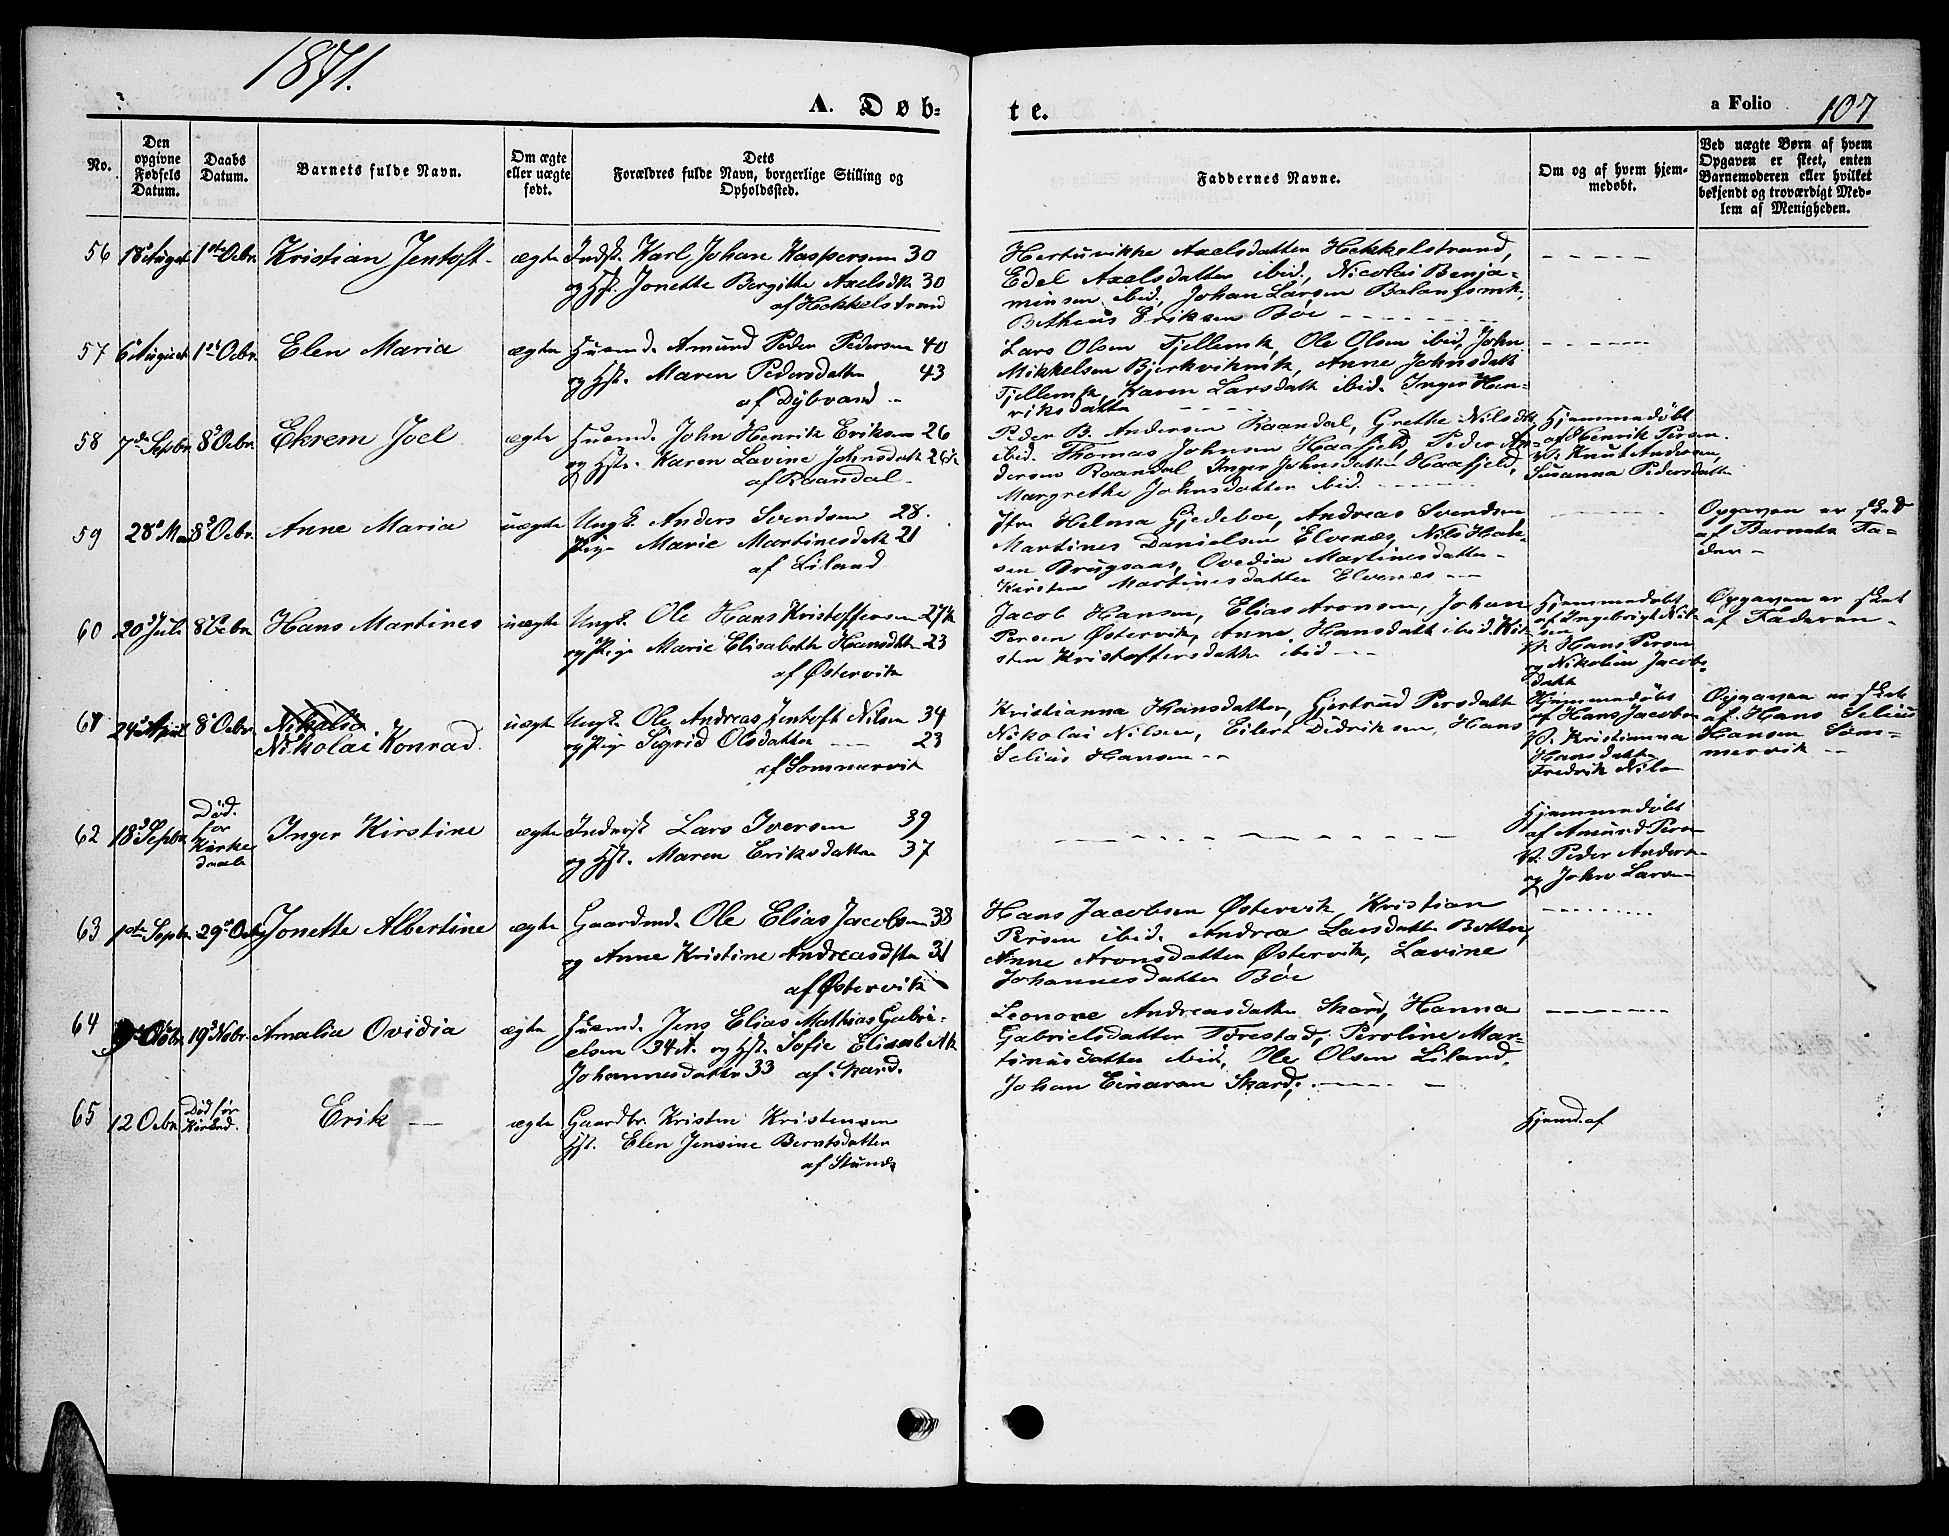 1871.
A. Døb-
te.
a Folio 107
No.
Den opgivne Fødsels Datum.
Daabs Datum.
Barnets fulde Navn.
Om ægte eller uægte født.
Dets Forældres fulde Navn, borgerlige Stilling og Opholdssted.
Faddernes Navne.
Om og af hvem hjemmedøbt.
Ved uægte Børn af hvem Opgaven er skeet, enten Barnemoderen eller hvilket bekjendt og troværdigt Medlem af Menigheden.
56 18 August 1ste Octbr. Kristian Jentoft ægte Indst. Karl Johan Kaspersen 30
og Hst. Jonette Bergitte Axelsdtr 30
af Hekkelstrand
Axelsdatter Hekkelstrand,
Edel Axelsdatter ibid., Nicolai Benja-
minsen ibid, Johan Larsen
Betheus Eriksen Bøe
57 6 August 1ste Octbr. Elen Maria ægte Husmd. Amund Peder Pedersen 40
og Hst. Maren Pedersdatter 43
af Dybvand
Lars Olsen Fjellemk, Ole Olsen ibid, John
Mikkelsen Bjerkvikmk, Anne Johnsdatt
Fjellemk, Karen Larsdatt ibid. Inger Hen-
riksdatter
58 7de Septbr. 8 Octbr. Ekrem Joel ægte Husmd. John Henrik Eriksen 26
og Hst. Karen Lavine Johnsdatt 26
af Raandal
Peder B. Andersen Raandal, Grethe Nilsdtr
ibid. Thomas Johnsen Haafjeld, Peder An-
dersen Raandal, Inger Johnsdatter Haafjeld,
Margrethe Johnsdatter ibid.
Hjemmedøbt
af Henrik Persen.
V. Knut Andersen,
Susanna Pedersdatter
59 28 Mai 8 Octbr. Anne Maria uægte Ungk. Anders Svendsen 28.
Pige Marie Martinesdatt 21
af Liland
Jfr. Helma Gjedeboe, Andreas Svendsen
Martines Danielsen Elvenæs, Nils Han-
sen Brugsaas, Ovedia Martinesdatter
Kirsten Martinesdatter Elvenes
Opgaven er sked
af Barnets Fa-
der
60 20 Juli 8 Octbr. Hans Martines uægte Ungk. Ole Hans Kristoffersen 27
og Pige Marie Elisabeth Hansdatter 23
af Østervik
Jacob Hansen, Elias Aronsen, Johan
Persen Østervik, Anne Hansdatt ibid. Kir-
sten Kristoffersdatter ibid
Hjemmedøbt
af Ingebrigt Nil-
sen
V. Hans Persen
og Nikoline Jacobs-
datt
Opgaven er sket
af Faderen
61 24 April 8 Octbr. Nikolai
Nikolai Konrad. uægte Ungk. Ole Andreas Jentoft Nilsen 34
og Pige Sigrid Olsdatter 23
af Sommervik
Kristianna Hansdatter, Gjertrud Persdatter
Nikolai Nilsen, Eilert Didriksen, Hans
Selius Hansen
Hjemmedøbt
af Hans Jacobsen
V. Kristianna
Hansdatter
Fredrik Nils
Opgaven er sket
af Hans Selius
Hansen Som-
mervik
62 18 Septbr. Død.
for
Kirke
daab Inger Kirstine ægte Inderst Lars Iversen 39
og Hst. Maren Eriksdatter 37
Hjemmedøbt
af Amund Pers
V. Peder Anders
og John Larsen
63 1ste Septbr. 29 Octbr Jonette Albertine ægte Gaardmd. Ole Elias Jacobsen 38
og Anne Kristine Andreasdtr 31
af Østervik
Hans Jacobsen Østervik, Kristian
Persen ibid. Andrea Larsdatter Botten,
Anne Aronsdatter Østervik, Lavine
Johannesdatter Bøe
64 Octbr. 19 Novbr. Amalia Ovidia ægte Husmd. Jens Elias Mathias Gabri-
elsen 34 A. og Hst. Sofie Elisabeth
Johannesdatter 33 af Skard.
Leonore Andreasdatter Skard, Hanna
Gabrielsdatter Forestad, Peroline Mar-
tinusdatter ibid, Ole Olsen Liland,
Johan Einarsen Skard,
65 12 Octbr. Død før
Erik ægte Gaardbr. Kristen Kristensen
Hst. Elen Jensine Berntsdatter
af Stunes
Hjemd. af